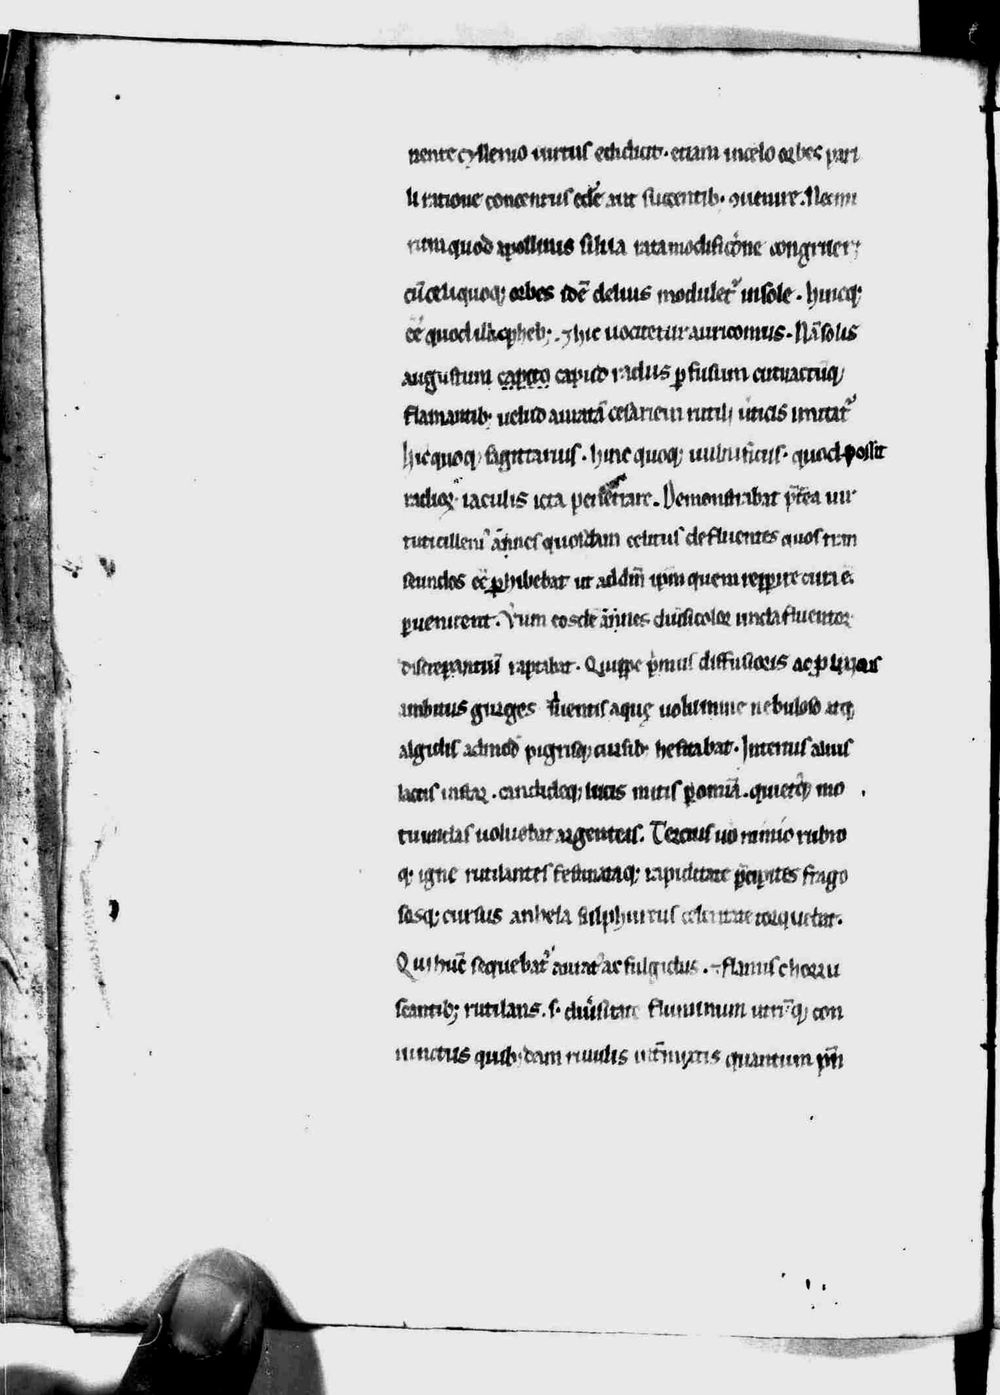 nente cyllenio uirtus edidicit · etiam in celo orbes pari
li ratione concentus edē aut succentib· ꝯuenire. Nec mi
rum quod apollinis silua rata modificōne congruer&
cū celi quoq; orbes idē delius moduletᷣ in sole · hincq;
eē quod illic pheb; · ⁊ hic uocitetur auricomus · Nā solis
augustum capito capud radiis ꝑfusum cuiractūq;
flamantib; uelud auratā cesariem rutili uticis imitatᷣ
hic quoq; sagittarius · hinc quoq; uulnificus · quod possit
radioꝝ iaculis icta penetrare. Demonstrabat p̄tea uir
tuti cilleniᷣ āmnes quosdam celitus defluentes quos tran
seundos eē ꝑhibebat ut ad dīm ipm quem repperire cuti e.
ꝑuenirent. Vum eosdē āmnes diuͥsicoloꝝ unda fluentoꝝ
discrepantiū raptabat · Quippe pͥmus diffusioris ac ꝑlixiᵒris
ambitus gurges liuentis aquę uolumine nebuloso atq;
algidis admod̄ pigrisq; cursib; hesitabat · Interius alius
lactis instar · candideq; lucis mitis ꝑ omīa · quietq; mo
tu undas uoluebat argenteas. Tercius uo nimio rubro
q; igne rutilantes festinataq; rapiditate p̄cipites frago
sosq; cursus anhela sulphureus celeritate torquebat.
Qui hūc sequebatᷣ auratᷣ ac fulgidus · ⁊ flamis chorru
scantib; rutilans · s· diuͥsitate fluminum utriq; con
iunctus quib;dam riuulis int̄mixtis quantum